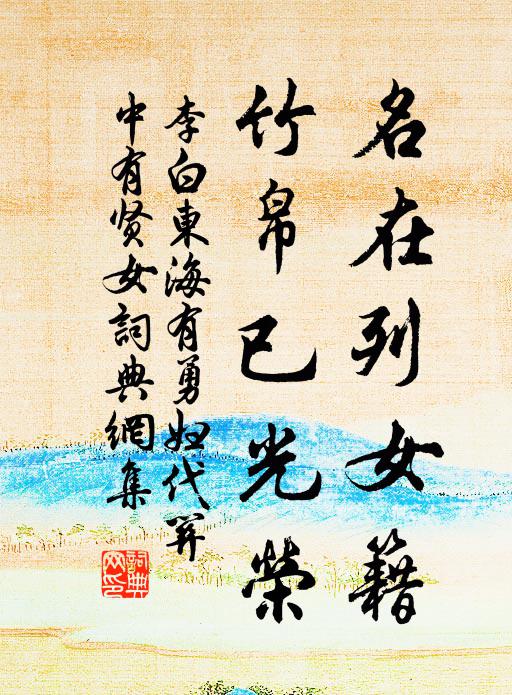 名在列女籍
竹帛已光榮
李白東海有勇妇代关
中有贤女詞典網集
詞典
网印